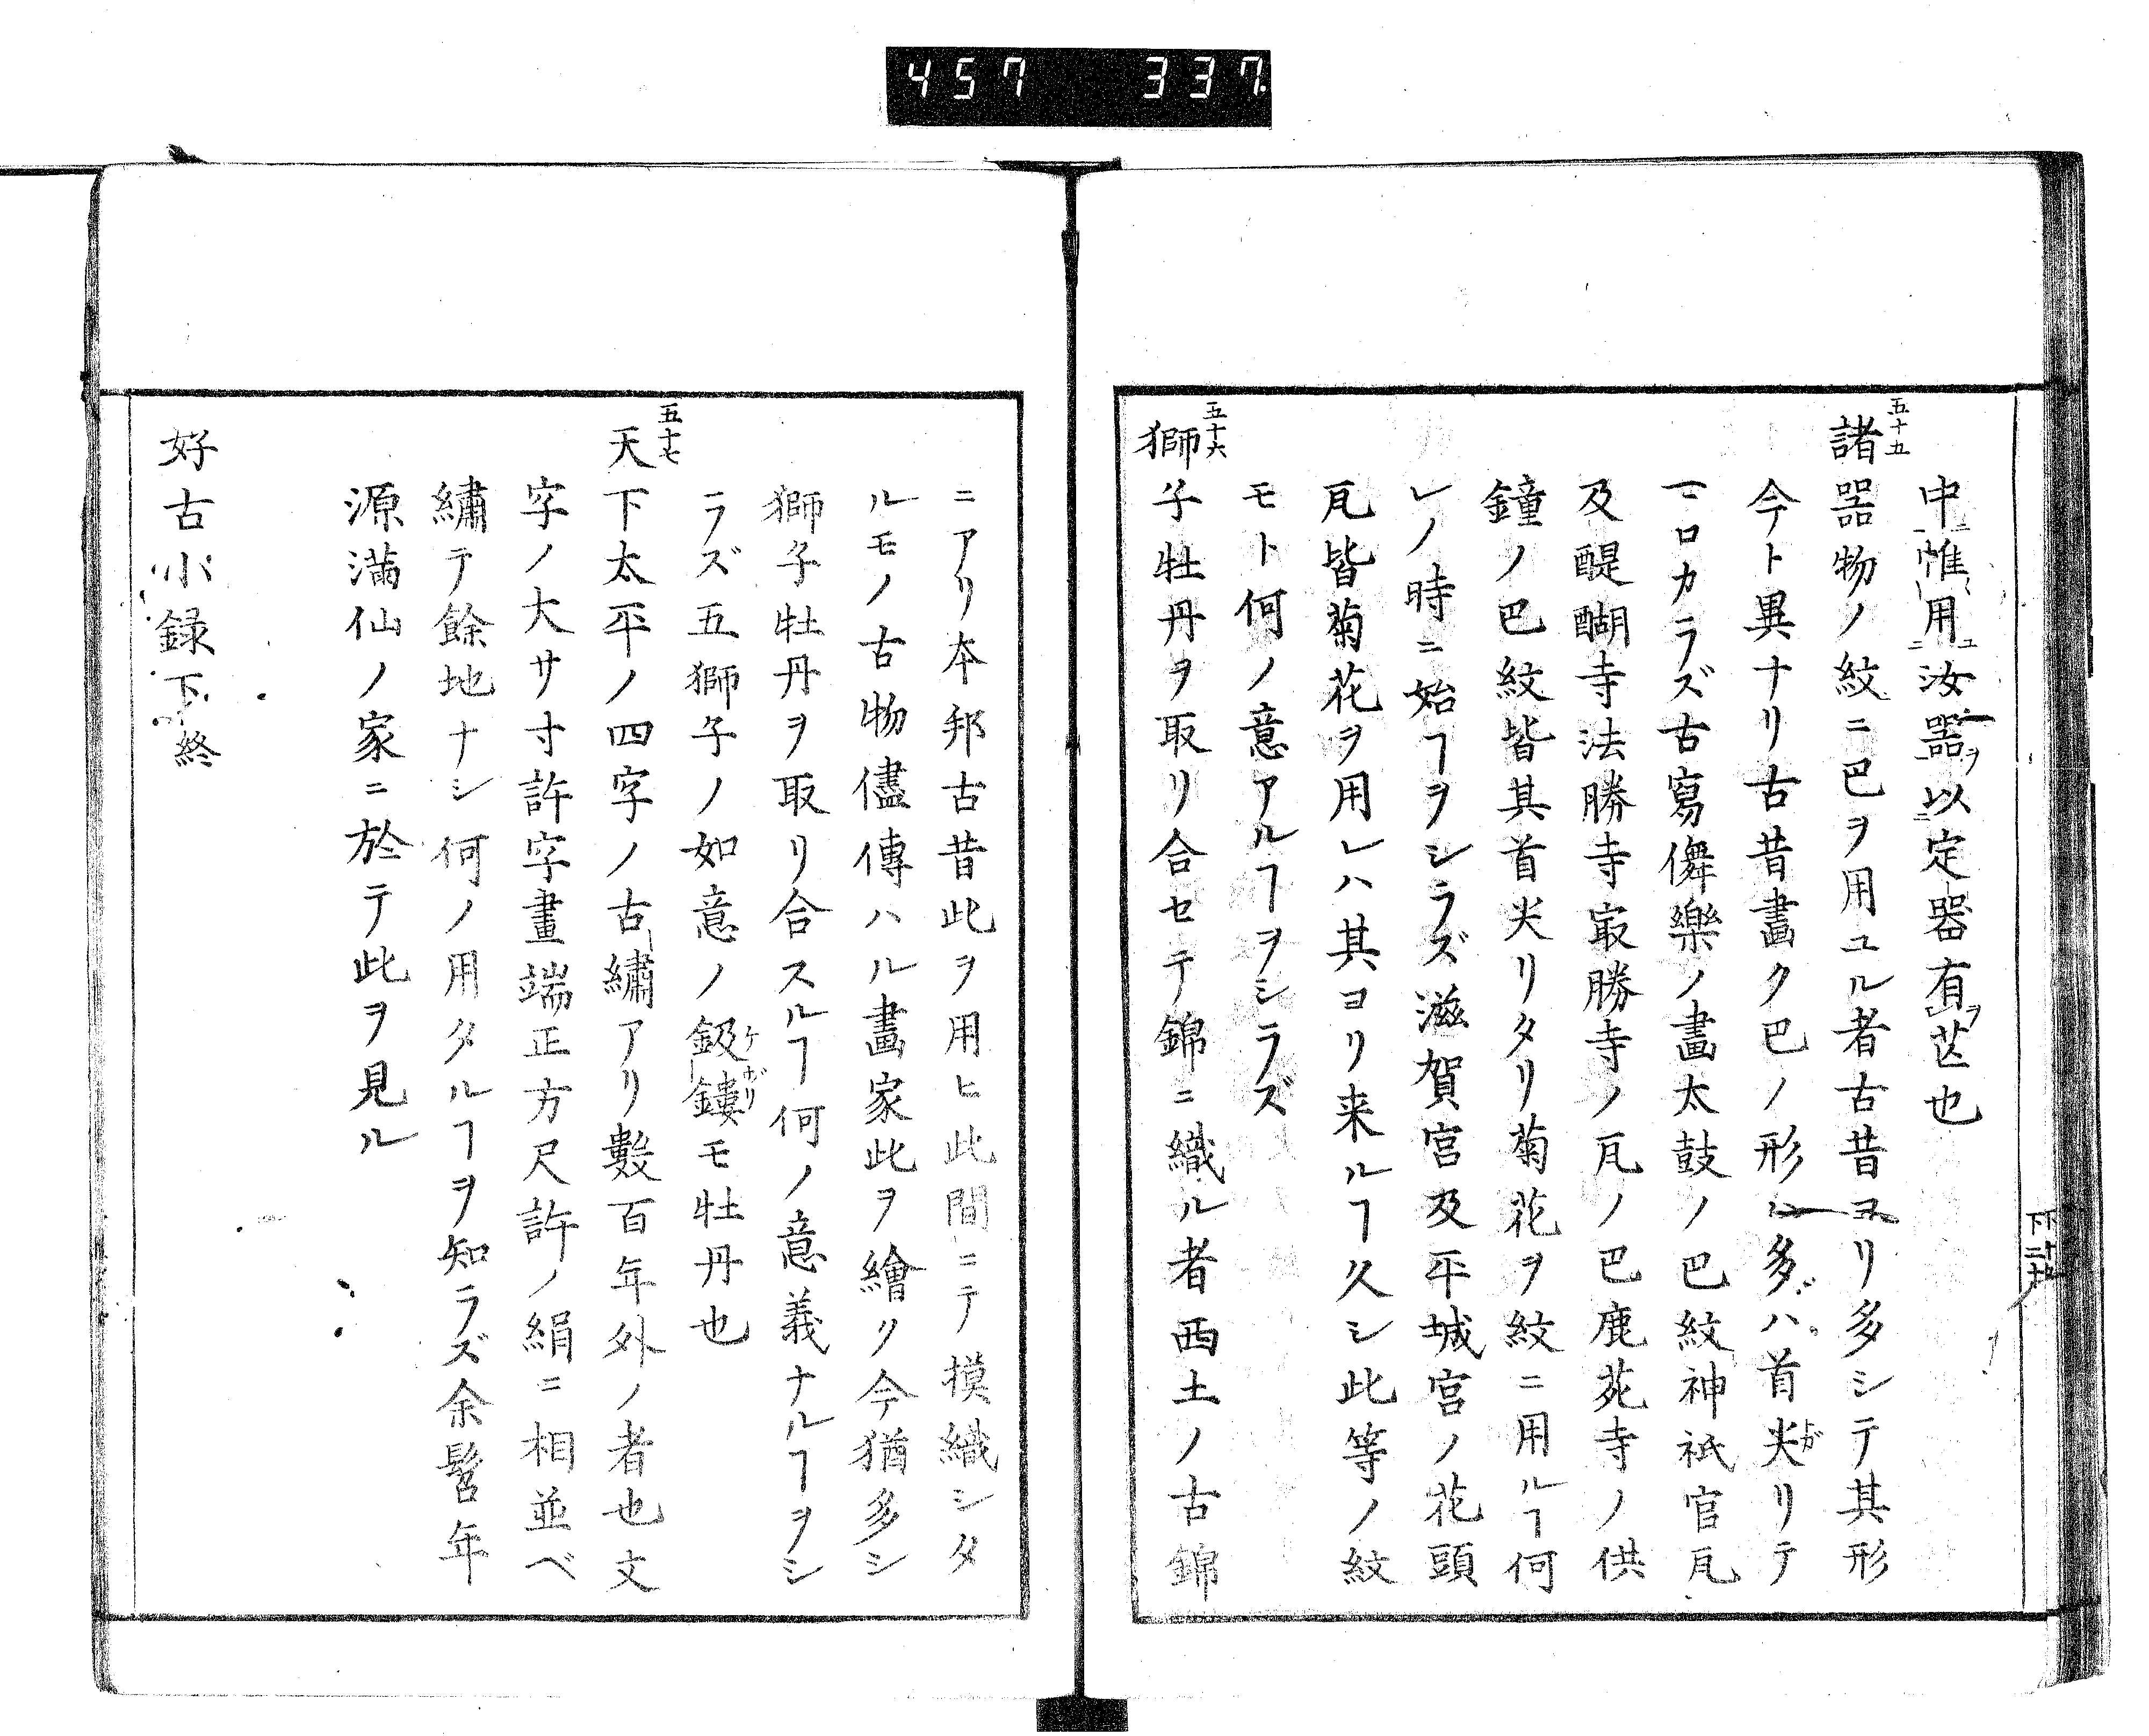 457 337
中惟用汝器以定器有芒也
五十五
諸器物ノ紋ニ巴ヲ用ユル者古昔ヨリ多シテ其形
今ト異ナリ古昔畫ク巴ノ形ハ多ハ首尖リテ
マロカラズ古寫儛樂ノ畫太鼓ノ巴紋神祇官瓦
及醍醐寺法勝寺冣勝寺ノ瓦ノ巴鹿苑寺ノ供
鐘ノ巴紋皆其首尖リタリ菊花ヲ紋ニ用ルヿ何
レノ時ニ始ヿヲシラズ滋賀宮及平城宮ノ花頭
瓦皆菊花ヲ用レハ其ヨリ来ルヿ久シ此等ノ紋
モト何ノ意アルヿヲシラズ
五十六
獅子牡丹ヲ取リ合セテ錦ニ織ル者西土ノ古錦
ニアリ本邦古昔此ヲ用ヒ此間ニテ摸織シタ
ルモノ古物儘傳ハル畫家此ヲ繪リ今猶多シ
獅子牡丹ヲ取リ合スルヿ何ノ意義ナルヿヲシ
ラズ五獅子ノ如意ノ鈒鏤モ牡丹也
五十七
天下太平ノ四字ノ古繡アリ數百年外ノ者也文
字ノ大サ寸許字畫端正方尺許ノ絹ニ相並ベ
繡テ餘地ナシ何ノ用タルヿヲ知ラズ余髫年
源滿仙ノ家ニ於テ此ヲ見ル
好古小録下終